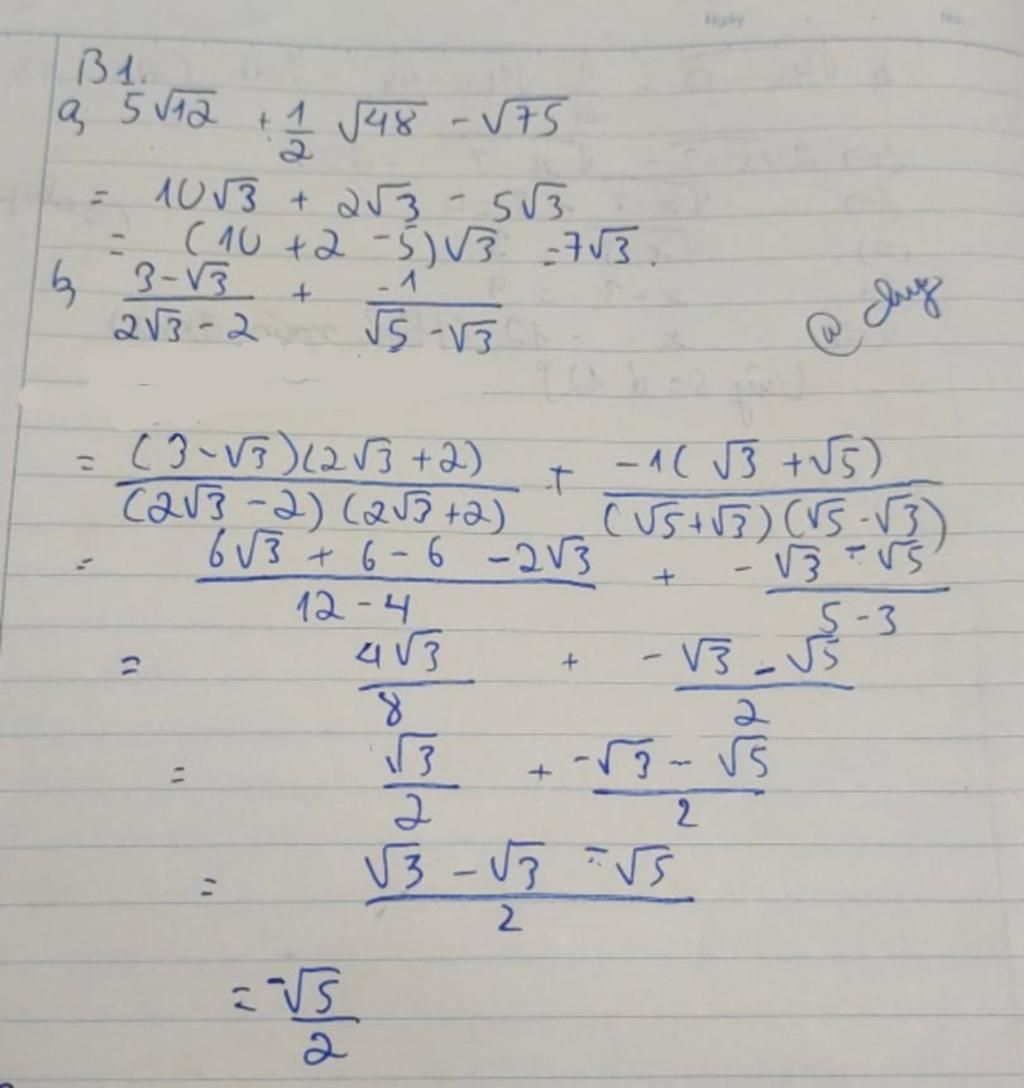 Ngày No.
B1.
a, 5√12 + 1/2 √48 - √75
= 10√3 + 2√3 - 5√3
= (10 + 2 - 5)√3 = 7√3.
b, (3-√3)/(2√3-2) + (-1)/(√5-√3)
@ Duy
= ((3-√3)(2√3+2))/((2√3-2)(2√3+2)) + (-1(√3+√5))/((√5+√3)(√5-√3))
= (6√3 + 6 - 6 - 2√3)/(12-4) + (-√3-√5)/(5-3)
= (4√3)/8 + (-√3-√5)/2
= √3/2 + (-√3-√5)/2
= (√3-√3-√5)/2
= (-√5)/2